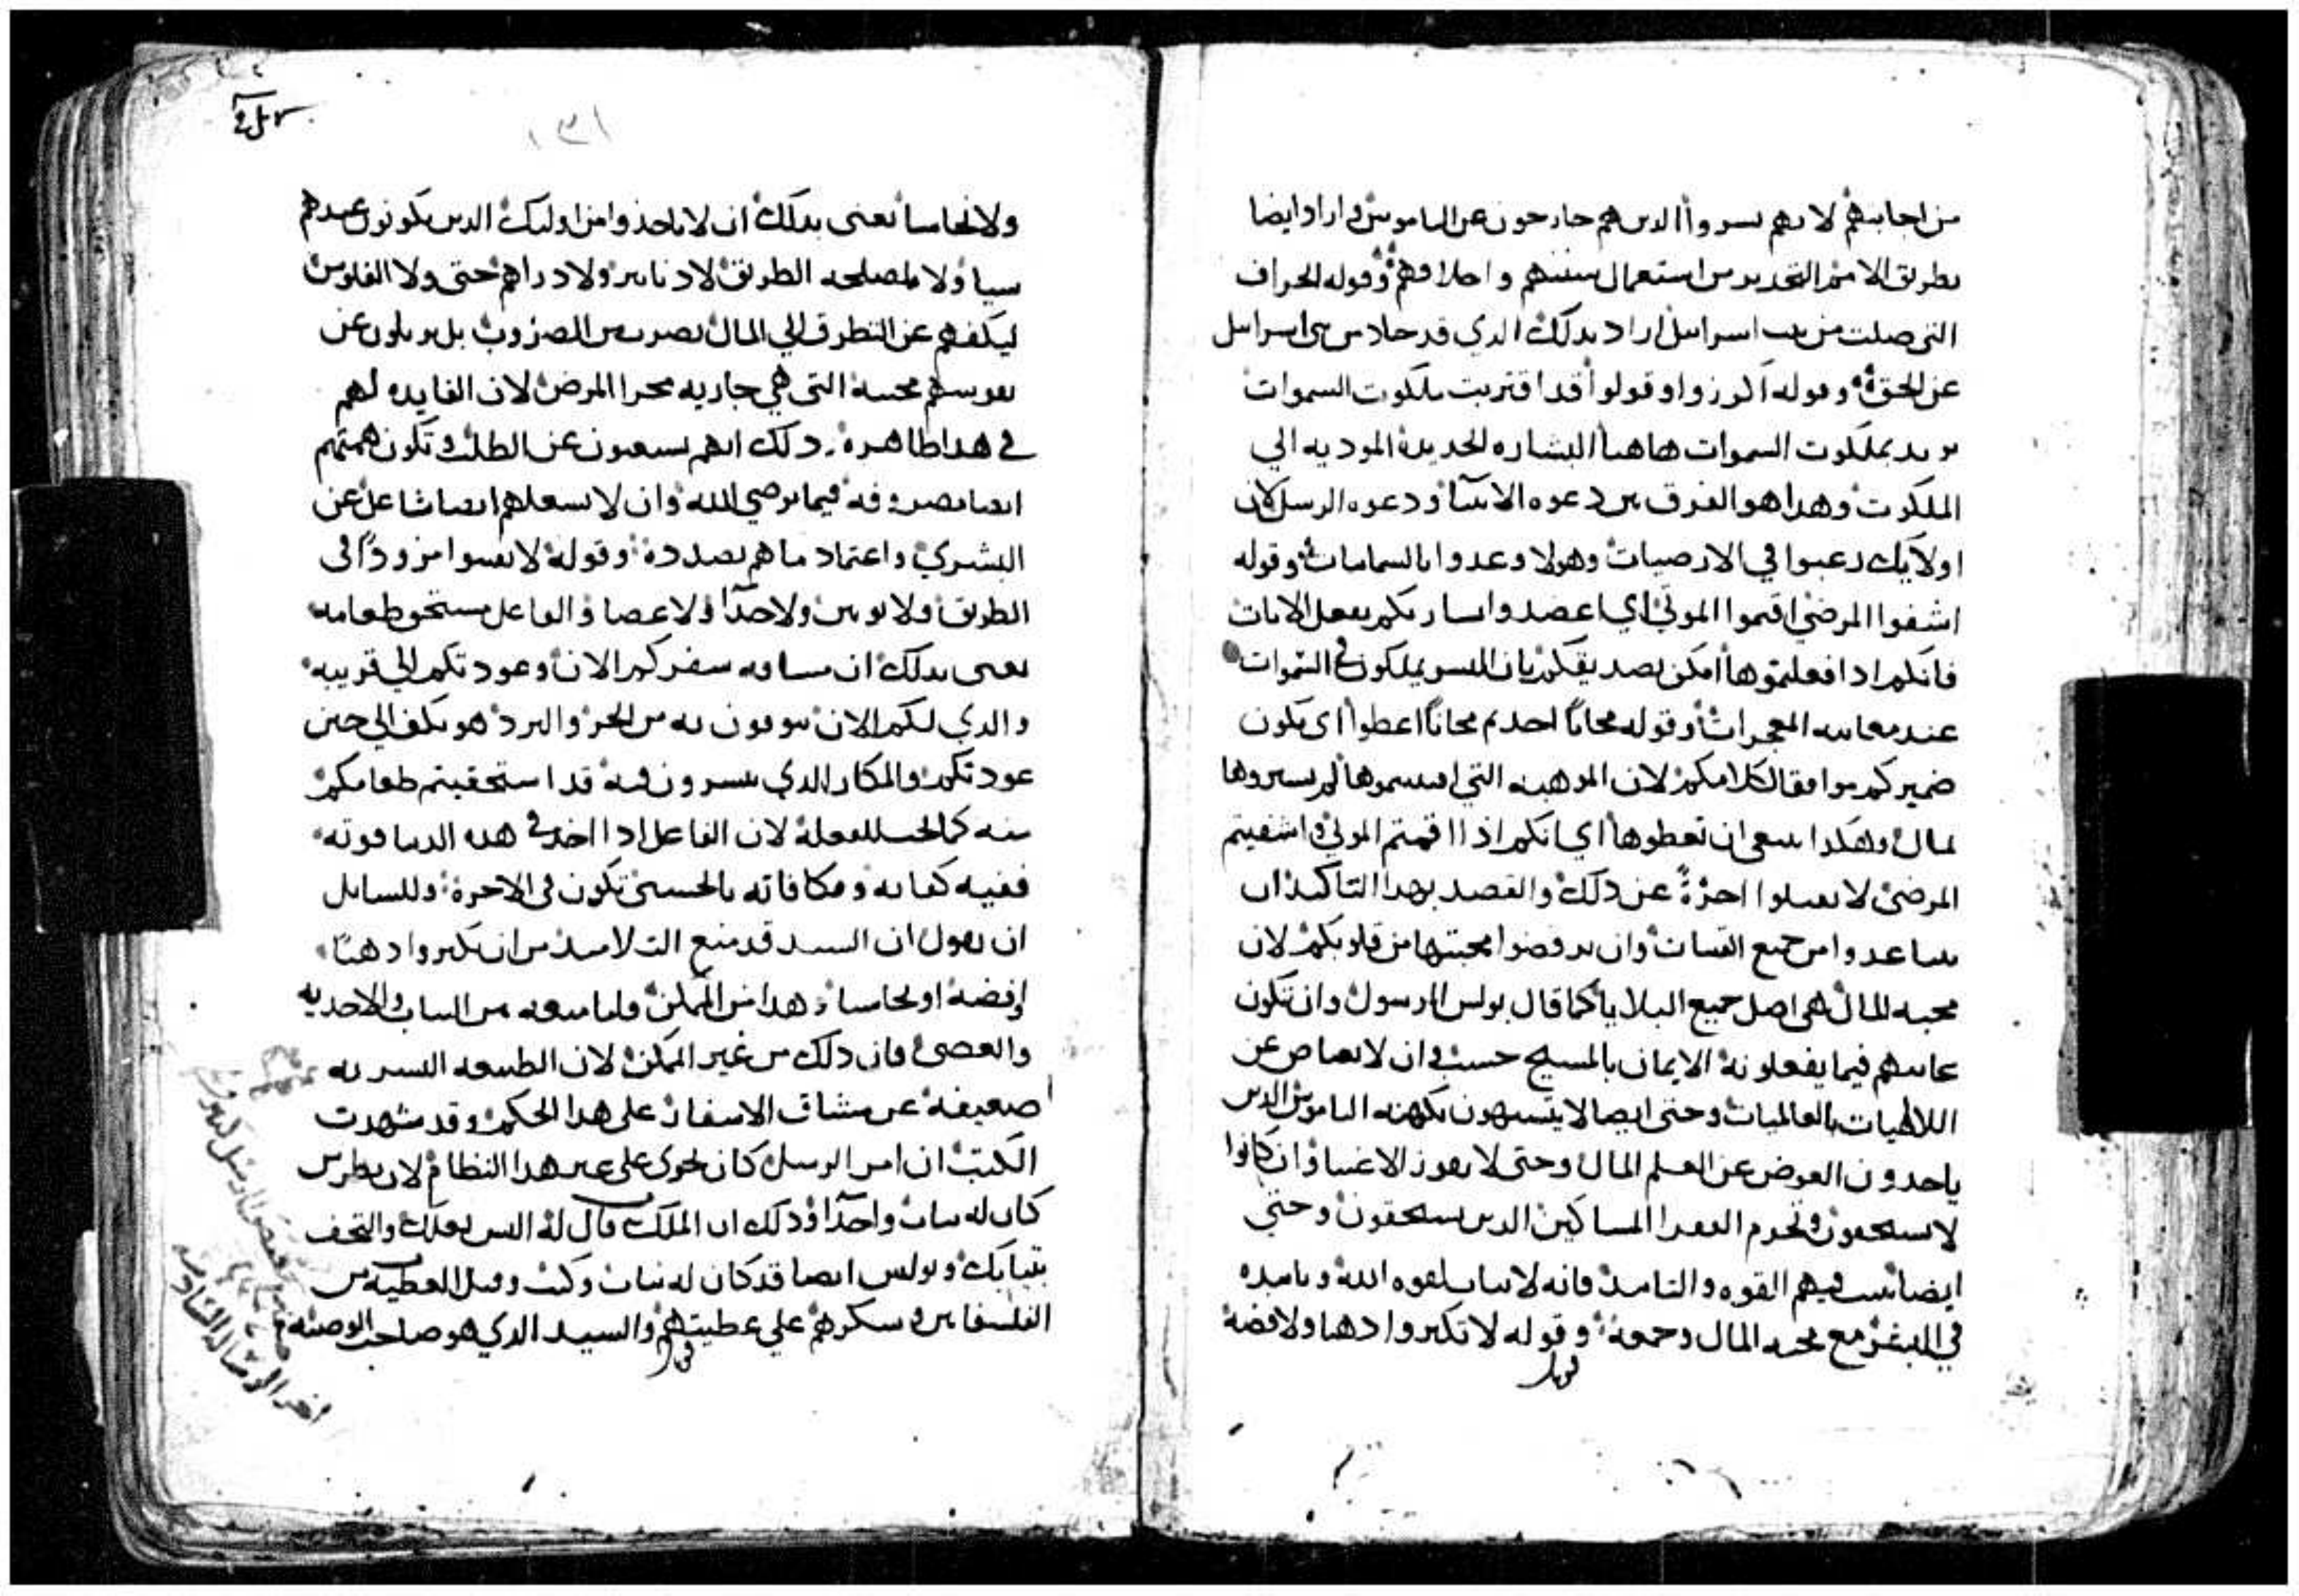 من اجابتهم لانهم يسروا الدين هم خارجون عن الناموس واراد ايضا
بطريق الامر التحدير من استعمال سننهم واخلاقهم وقوله الخراف
التي ضلت من بيت اسرايل اراد بدلك الدي قد حاد من بني اسرايل
عن الحق وقوله اكرزوا وقولوا قد اقتربت ملكوت السموات
يريد بملكوت السموات هاهنا البشاره الحديده الموديه الي
الملكوت وهدا هو الفرق بين دعوه الانبيا ودعوه الرسل لان
اولايك رغبوا في الارضيات وهولا وعدوا بالسماييات وقوله
اشفوا المرضي اقيموا الموتي اي اعضدوا بشارتكم بفعل الايات
فانكم ادا فعلتموها امكن تصديقكم بان للبشر ملكوت في السموات
عند معاينه المعجزات وقوله مجانا اخدتم مجانا اعطوا اي يكون
ضميركم موافقا لكلامكم لان الموهبه التي لم تشتروها
بمال وهكدا ينبغي ان تعطوها اي انكم اذا اقمتم الموتي واشفيتم
المرضي لا تقبلوا اجرة عن ذلك والقصد بهدا التاكيد ان
يتباعدوا من جميع القنيات وان يرفضوا محبتها من قلوبكم لان
محبه المال هي اصل جميع البلايا كما قال بولس الرسول وان تكون
غايتهم فيما يفعلونه الايمان بالمسيح حسب وان لا يعتاض عن
الالاهيات بالعالميات وحتي ايضا لا يتشبهون بكهنه الناموس الدين
ياخدون العوض عن العلم المال وحتي لا يفوز الاغنيا وان كانوا
لا يستحقون وتحرم الفقرا المساكين الدين يستحقون وحتي
ايضا تثبت فيهم القوه والتاييد فانه لا ثبات لقوه الله وتاييده
في البشر مع محبه المال وجمعه وقوله لا تكنزوا دهبا ولا فضة
١٣١
ولا نحاسا يعني بدلك ان لا ياخذوا من اوليك الدين يكونون عندهم
شيا ولا لمصلحه الطريق لا دنانير ولا دراهم حتي ولا الفلوس
ليكفهم عن التطرق الي المال بضرب من الضروب بل يزيلون عن
نفوسهم محبته التي هي جاريه مجرا المرض لان الفايده لهم
في هدا ظاهرة ودلك انهم يستغنون عن الطلب وتكون همتهم
ايضا مصروفه فيما يرضي الله وان لا يشغلهم ايضا شاغل عن
البشري واعتماد ما هم بصدده وقوله لا تقتنوا مزودا في
الطريق ولا ثوبين ولا حذا ولا عصا والفاعل مستحق طعامه
يعني بدلك ان مسافه سفركم الان وعودتكم الي قريبه
والدي لكم الان توقون به من الحر والبرد هو يكفي الي حين
عودتكم والمكان الدي تبشرون فيه قد استحقيتم طعامكم
منه كما يجب للفعله لان الفاعل ادا اخد في هده الدنيا قوته
ففيه كفايه ومكافاته بالحسني تكون في الاخرة وللسايل
ان يقول ان السيد قد منع التلاميذ من ان يكنزوا دهبا
او فضة او نحاسا وهدا من الممكن فلما منعه من الثياب والاحديه
والعصي فان دلك من غير الممكن لان الطبيعه البشريه
ضعيفة عن مشاق الاسفار علي هدا الحكم وقد شهدت
الكتب ان امر الرسل كان يجري علي غير هدا النظام لان بطرس
كان له ثياب واحذا ودلك ان الملك قال له البس نعلك والتحف
بثيابك وبولس ايضا قد كان له ثياب وكتب وقبل العطيه من
الفلسفايين وشكرهم علي عطيتهم والسيد الدي هو صاحب الوصيه